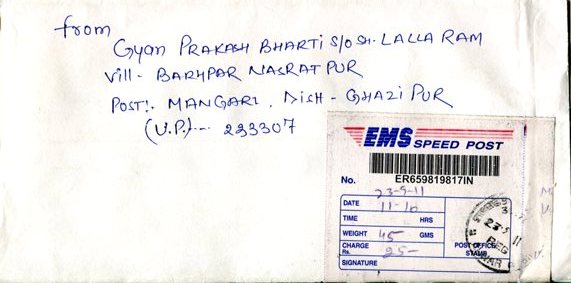 from
Gyan PRAKASH BHARTI S/O SH. LALLA RAM
Vill - BARHPAR NASRATPUR
POST:- MANGARI, Distt - GHAZIPUR
(U.P.) -- 233307
EMS SPEED POST
No. ER659819817IN
23-5-11
DATE 11-10
TIME HRS
WEIGHT 45 GMS
CHARGE Rs. 25-
POST OFFICE STAMP
SIGNATURE